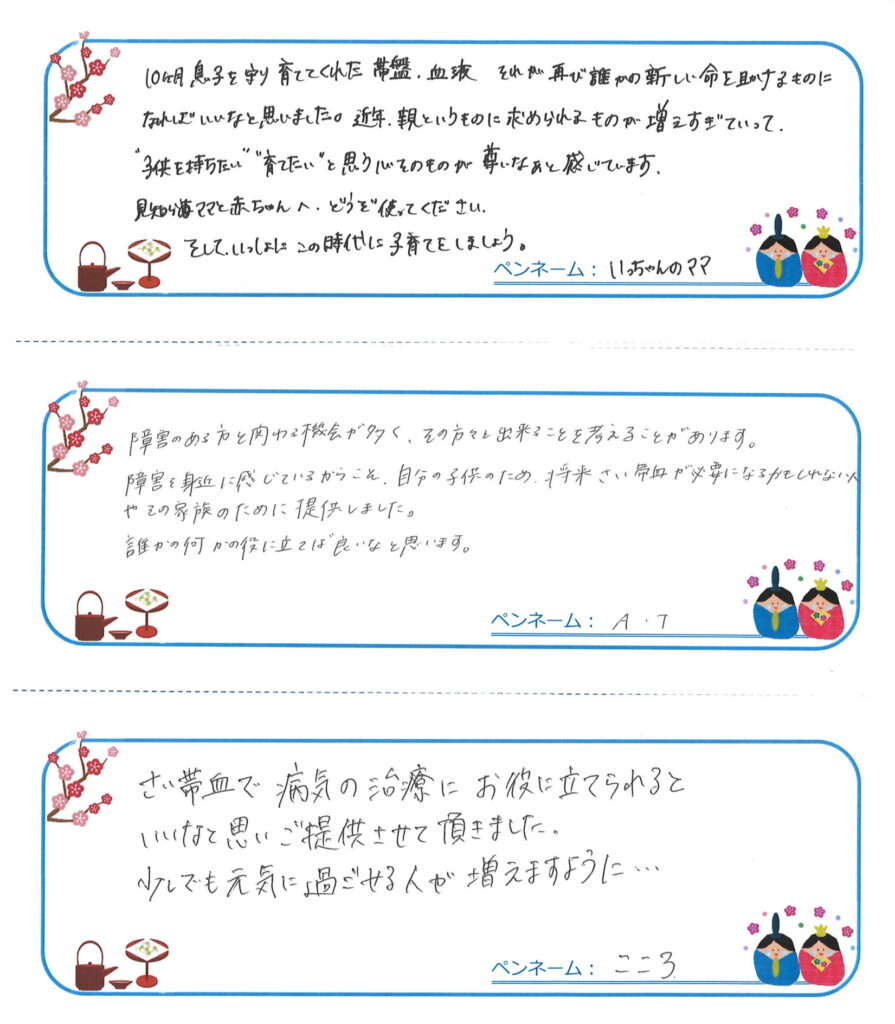 10ヶ月 息子を守り育ててくれた 帯盤、血液 それが再び誰かの新しい命を助けるものに
なればいいなと思いました。近年、親というものに求められるものが増えすぎていって、
"子供を持ちたい""育てたい"と思う心そのものが尊いなあと感じています。
見知らぬママと赤ちゃんへ、どうぞ使ってください。
そして、いっしょにこの時代に子育てをしましょう。
ペンネーム： いっちゃんのママ
障害のある方と関わる機会が多く、その方々と出来ることを考えることがあります。
障害を身近に感じているからこそ、自分の子供のため、将来さい帯血が必要になるかもしれない人
やその家族のために提供しました。
誰かの何かの役に立てば良いなと思います。
ペンネーム： A・T
さい帯血で病気の治療にお役に立てられると
いいなと思いご提供させて頂きました。
少しでも元気に過ごせる人が増えますように…
ペンネーム： こころ